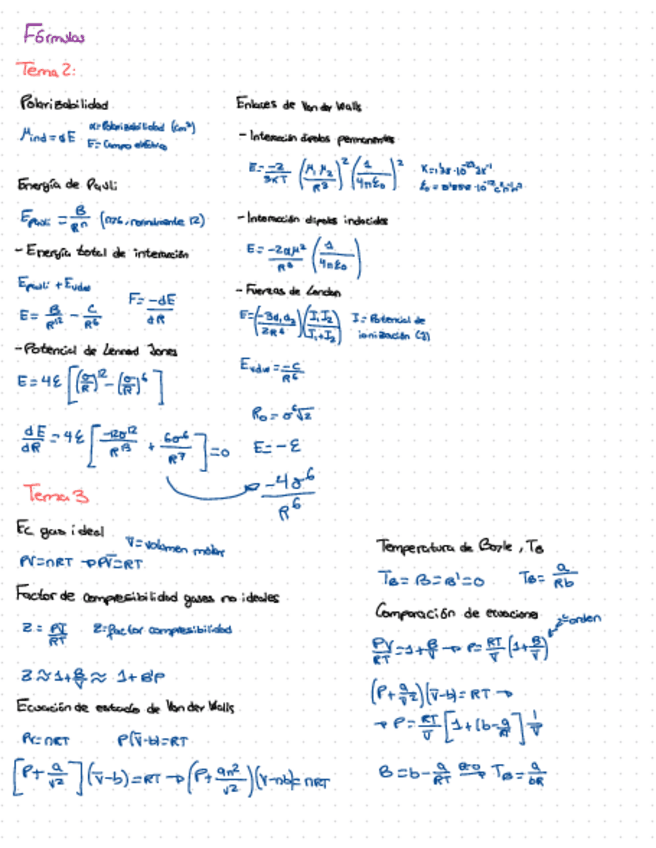 Fórmulas
Tema 2:
Polarizabilidad
μind = αE
α: Polarizabilidad (cm³)
E = Campo eléctrico
Energía de Pauli
Epauli = B/Rⁿ (n≥6, normalmente 12)
- Energía total de interacción
Epauli + Evdw
E = B/R¹² - C/R⁶
F = -dE/dR
- Potencial de Lennard Jones
E = 4ε [(σ/R)¹² - (σ/R)⁶]
dE/dR = 4ε [-12σ¹²/R¹³ + 6σ⁶/R⁷] = 0
Enlaces de Van der Walls
- Interacción dipolos permanentes
E = -2/3KT (μ₁μ₂/R³)² (1/4πε₀)²
- Interacción dipolos inducidos
E = -2αμ²/R⁶ (1/4πε₀)
- Fuerzas de London
E = (-3α₁α₂/2R⁶)(I₁I₂/I₁+I₂)
I = Potencial de
ionización (J)
Evdw = -C/R⁶
R₀ = σ⁶√2
E = -ε
-4σ⁶/R⁶
Tema 3
Ec gas ideal
V̄ = volumen molar
PV = nRT → PV̄ = RT
Factor de compresibilidad gases no ideales
Z = PV̄/RT
Z = factor compresibilidad
Z ≈ 1 + B/V̄ ≈ 1 + B'P
Ecuación de estado de Van der Walls
PV = nRT
P(V̄-b) = RT
[P + a/V̄²](V̄-b) = RT → (P + an²/V²)(V-nb) = nRT
Temperatura de Boyle, TB
TB = B = B' = 0
TB = a/Rb
Comparación de ecuaciones
2º orden
PV̄/RT = 1 + B/V̄ → P = RT/V̄ (1 + B/V̄)
(P + a/V̄²)(V̄-b) = RT →
→ P = RT/V̄ [1 + (b - a/RT] 1/V̄
B = b - a/RT B=0 → TB = a/bR